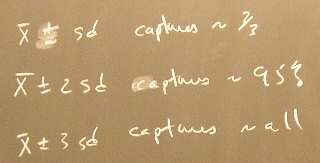 X̄ ± sd captures ~ 2/3
X̄ ± 2 sd captures ~ 95%
X̄ ± 3 sd captures ~ all